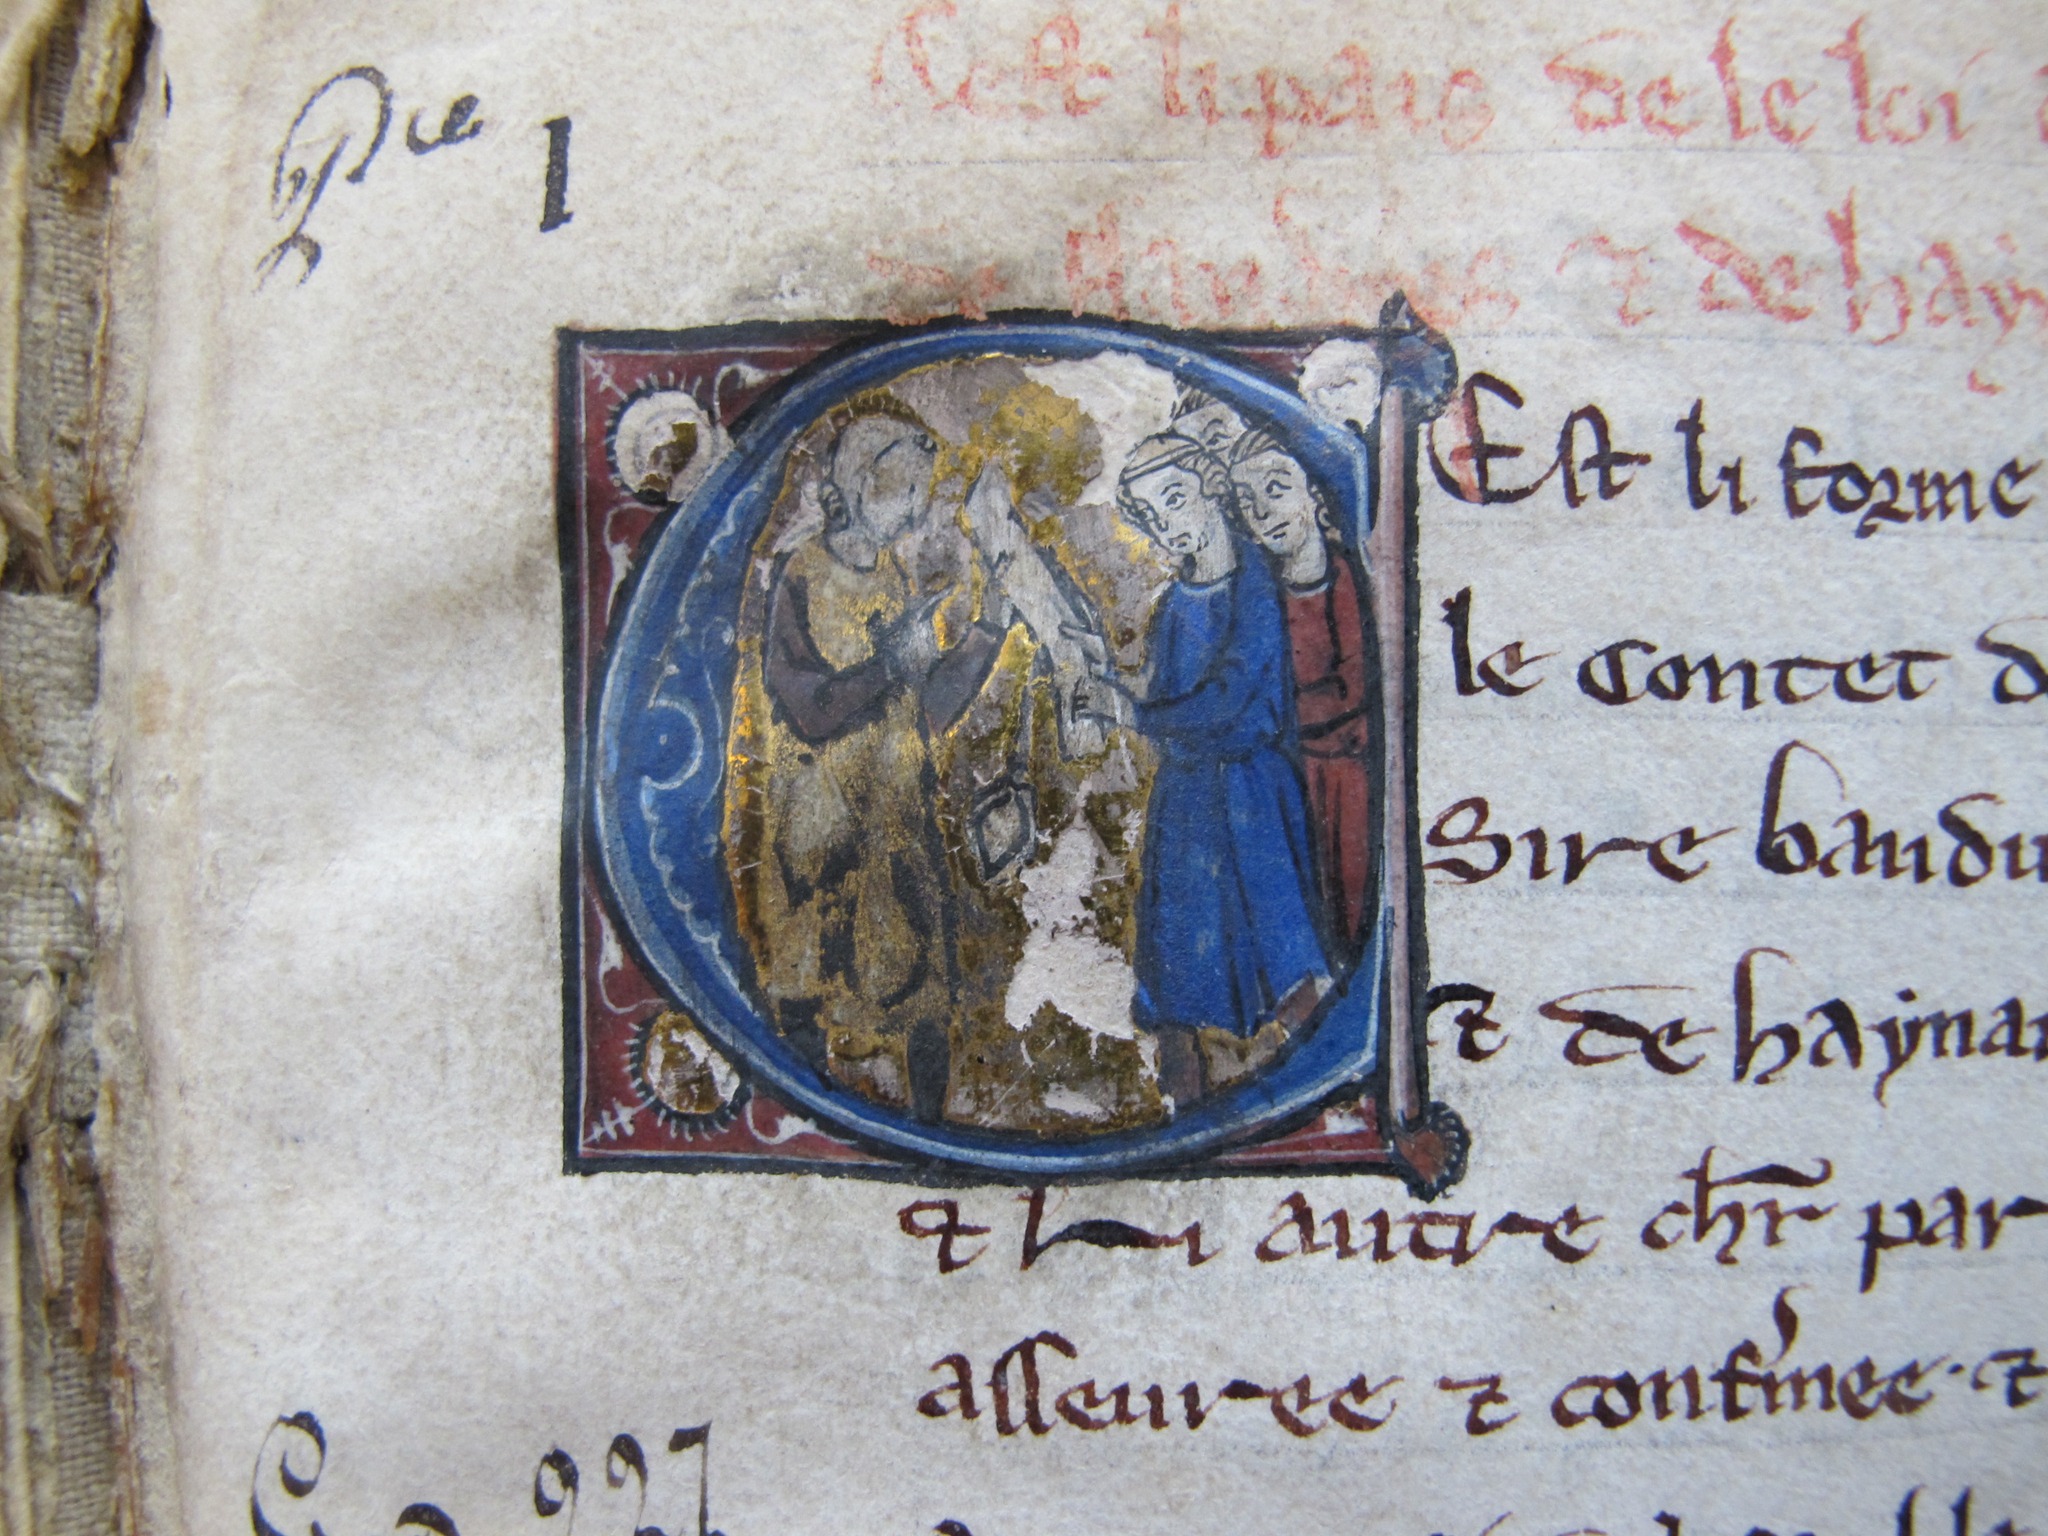 Cest li pais de le loi
I
de flandres ⁊ de hayn
Est li forme
le contet d
Sire baudu
⁊ de haynau
⁊ li autre chr̄ par
asseuree ⁊ confmee · ⁊